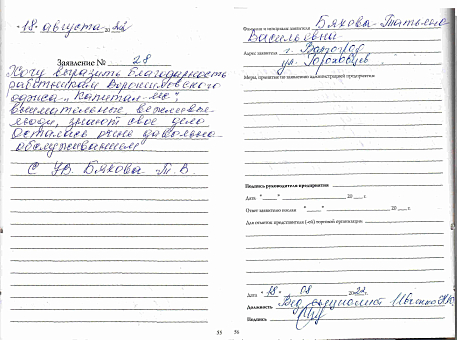 "18" августа 2022
Заявление № 28
Хочу выразить благодарность
работникам Ворошиловского
офиса "Капитал-
внимательные, вежливые
люди, знают свое дело
Осталась очень довольна
обслуживанием
С ув. Бякова Т. В.
55
Фамилия и инициалы заявителя Бякова Татьяна
Васильевна
Адрес заявителя г. Волгоград
ул.
Меры, принятые по заявлению администрацией предприятия:
Подпись руководителя предприятия
Дата " " 20 г.
Ответ заявителю послан " " 20 г.
Для отметок представителя (-ей) торговой организации:
Дата "18" 08 2022г.
Должность Вед. специалист Ивченко
Подпись
56